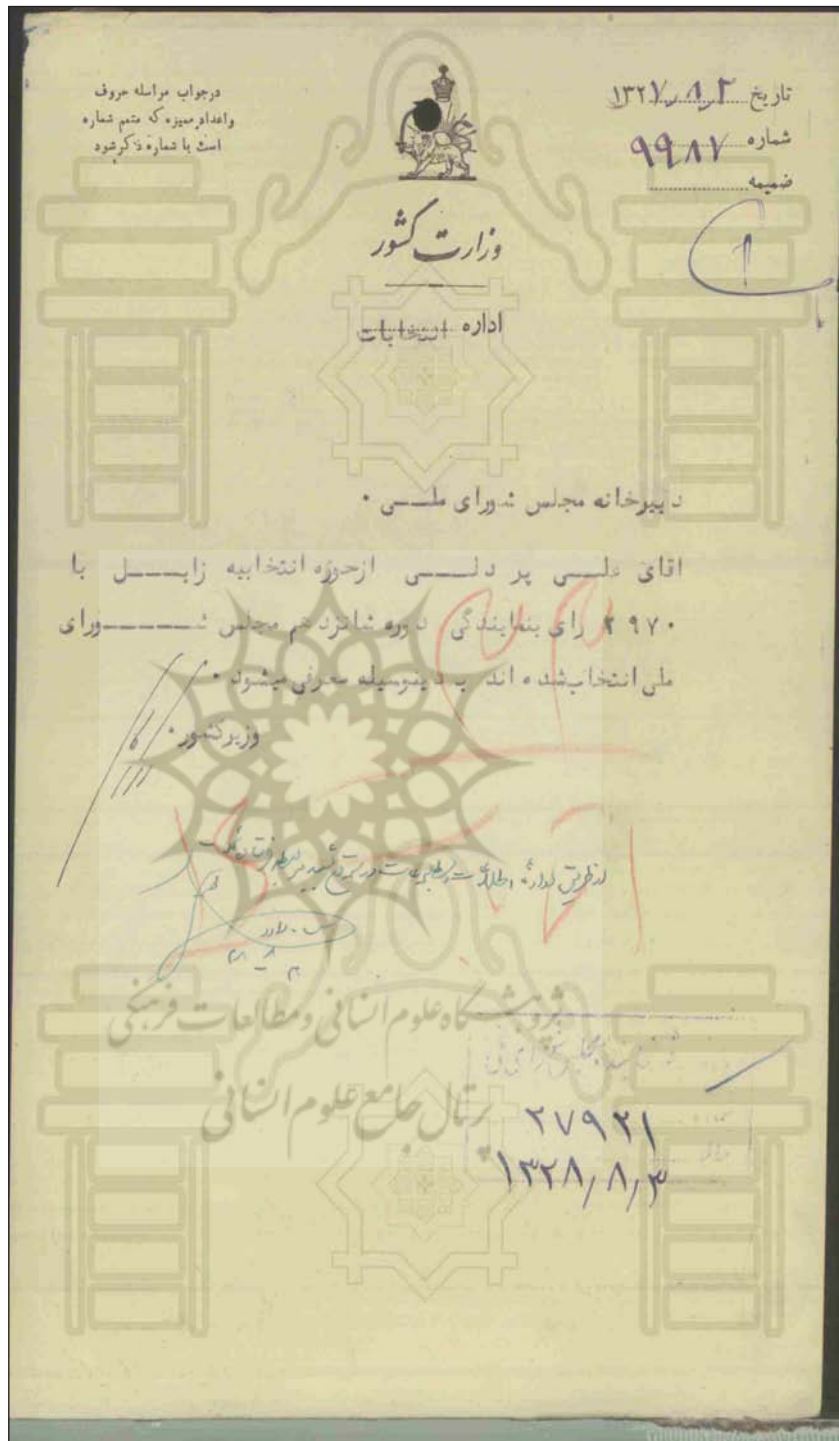 تاریخ ۱۳۲۷٫۸٫۲
شماره ۹۹۸۷
ضمیمه
درجواب مراسله حروف
واعداد ممیزه که متمم شماره
است با شماره ذکر شود
وزارت کشور
اداره انتخابات
دبیرخانه مجلس شورای ملــی ۰
اقای علــی پر دلــی ازحوزه انتخابیه زابــل با
۲۹۷۰ رای بنمایندگی دوره شانزدهم مجلس شــورای
ملی انتخاب شده اند بدینوسیله معرفی میشود ۰
وزیرکشور ۰
پژوهشگاه علوم انسانی و مطالعات فرهنگی
پرتال جامع علوم انسانی
۲۷۹۲۱
۱۳۲۸٫۸٫۳